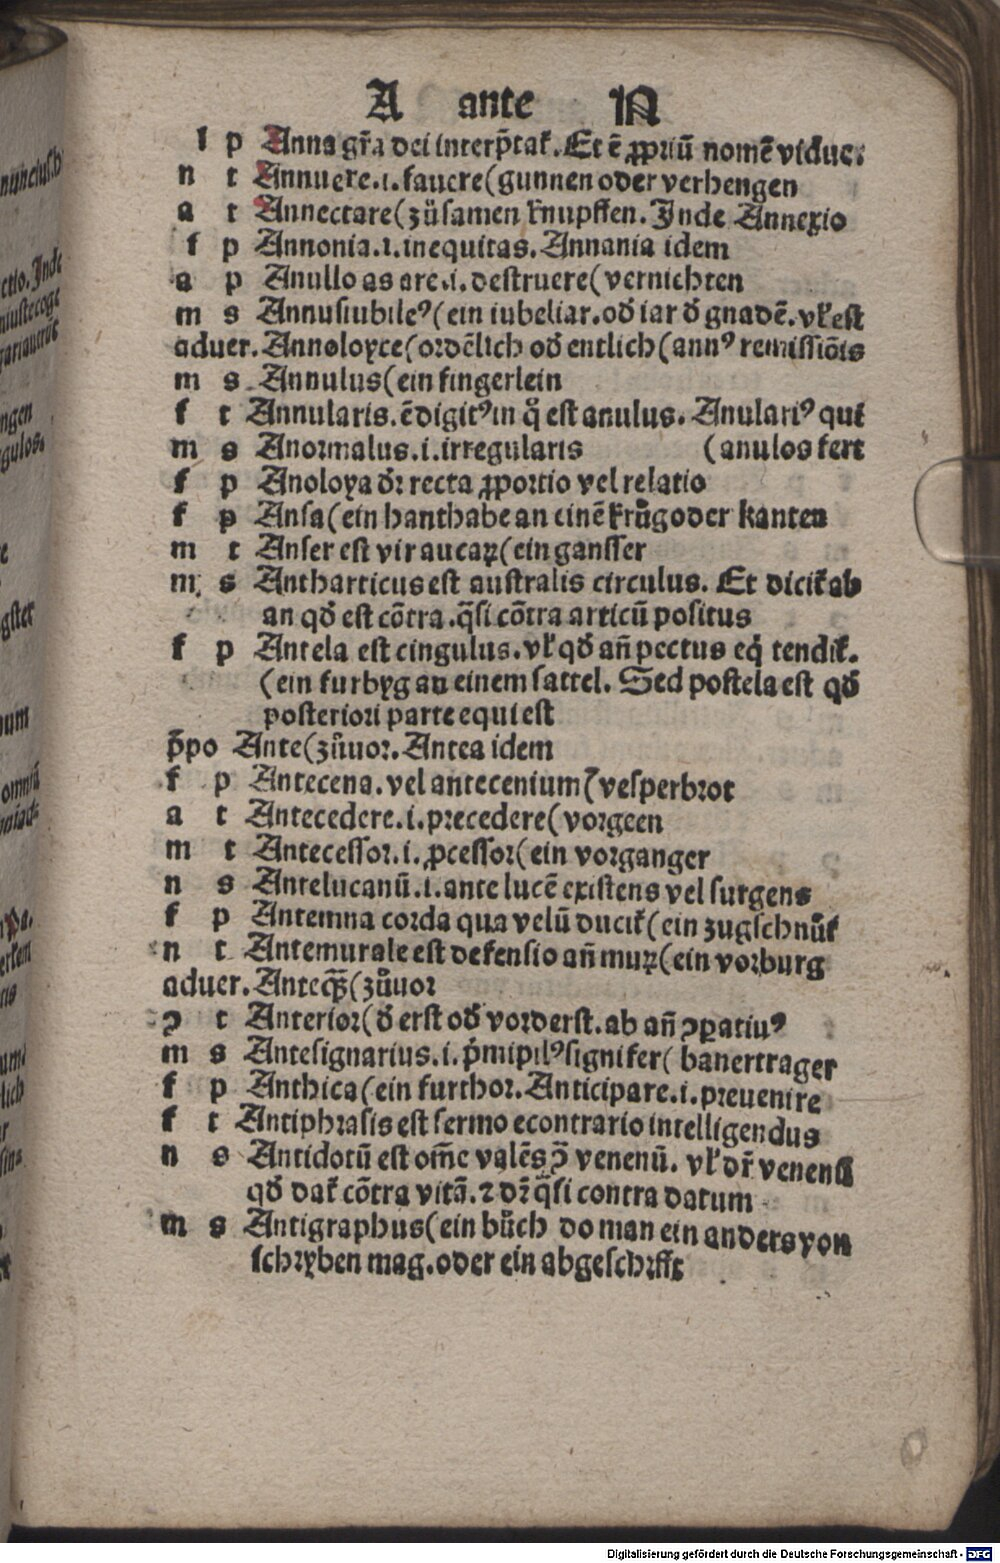 A ante N
f p Anna gr̄a dei interp̄tat᷑. Et ē ꝓpriū nomē vidue.
n t Annuere .i. fauere (gunnen oder verhengen
a t Annectare (zůsamen knupffen. Inde Annexio
f p Annonia .i. inequitas. Annania idem
a p Anullo as are .i. destruere (vernichten
m s Annusiubileꝰ (ein iubeliar. od̕ iar d̕ gnadē. vl᷑ est
aduer. Annoloyce (ordēlich od̕ entlich (annꝰ remissiōis
m s Annulus (ein fingerlein
f t Annularis. ē digitꝰ in q̊ est anulus. Anulariꝰ qui
m s Anormalus .i. irregularis (anulos fert
f p Anoloya dr̄ recta ꝓportio vel relatio
f p Ansa (ein hanthabe an einē krůg oder kanten
m t Anser est vir aucaꝝ (ein gansser
m s Antharticus est australis circulus. Et dicit᷑ ab
an qd̕ est cōtra. q̄si cōtra articū positus
f p Antela est cingulus. vl᷑ qd̕ an̄ pectus eq̇ tendit᷑.
(ein furbyg an einem sattel. Sed postela est qd̕
posteriori parte equi est
p̄po Ante (zůuor. Antea idem
f p Antecena. vel antecenium (vesperbrot
a t Antecedere .i. precedere (vorgeen
m t Antecessor .i. ꝓcessor (ein vorganger
n s Antelucanū .i. ante lucē existens vel surgens
f p Antemna corda qua velū ducit᷑ (ein zugschnůr
n t Antemurale est defensio an̄ muꝝ (ein vorburg
aduer. Anteq̄ꝫ (zůuor
ꝯ t Anterior (d̕ erst od̕ vorderst. ab an̄ ꝯparatiuꝰ
m s Antesignarius .i. p̄mipilꝰ signifer (banertrager
f p Anthica (ein furthor. Anticipare .i. preuenire
f t Antiphrasis est sermo econtrario intelligendus
n s Antidotū est om̄e valēs ꝯ̄ venenū. vl᷑ dr̄ venenū
qd̕ dat᷑ cōtra vitā. ⁊ dr̄ q̄si contra datum
m s Antigraphus (ein bůch do man ein anders von
schryben mag. oder ein abgeschrifft
Digitalisierung gefördert durch die Deutsche Forschungsgemeinschaft - DFG